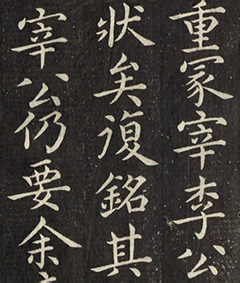 重冢宰李公
狀矣復銘其
宰公仍要余